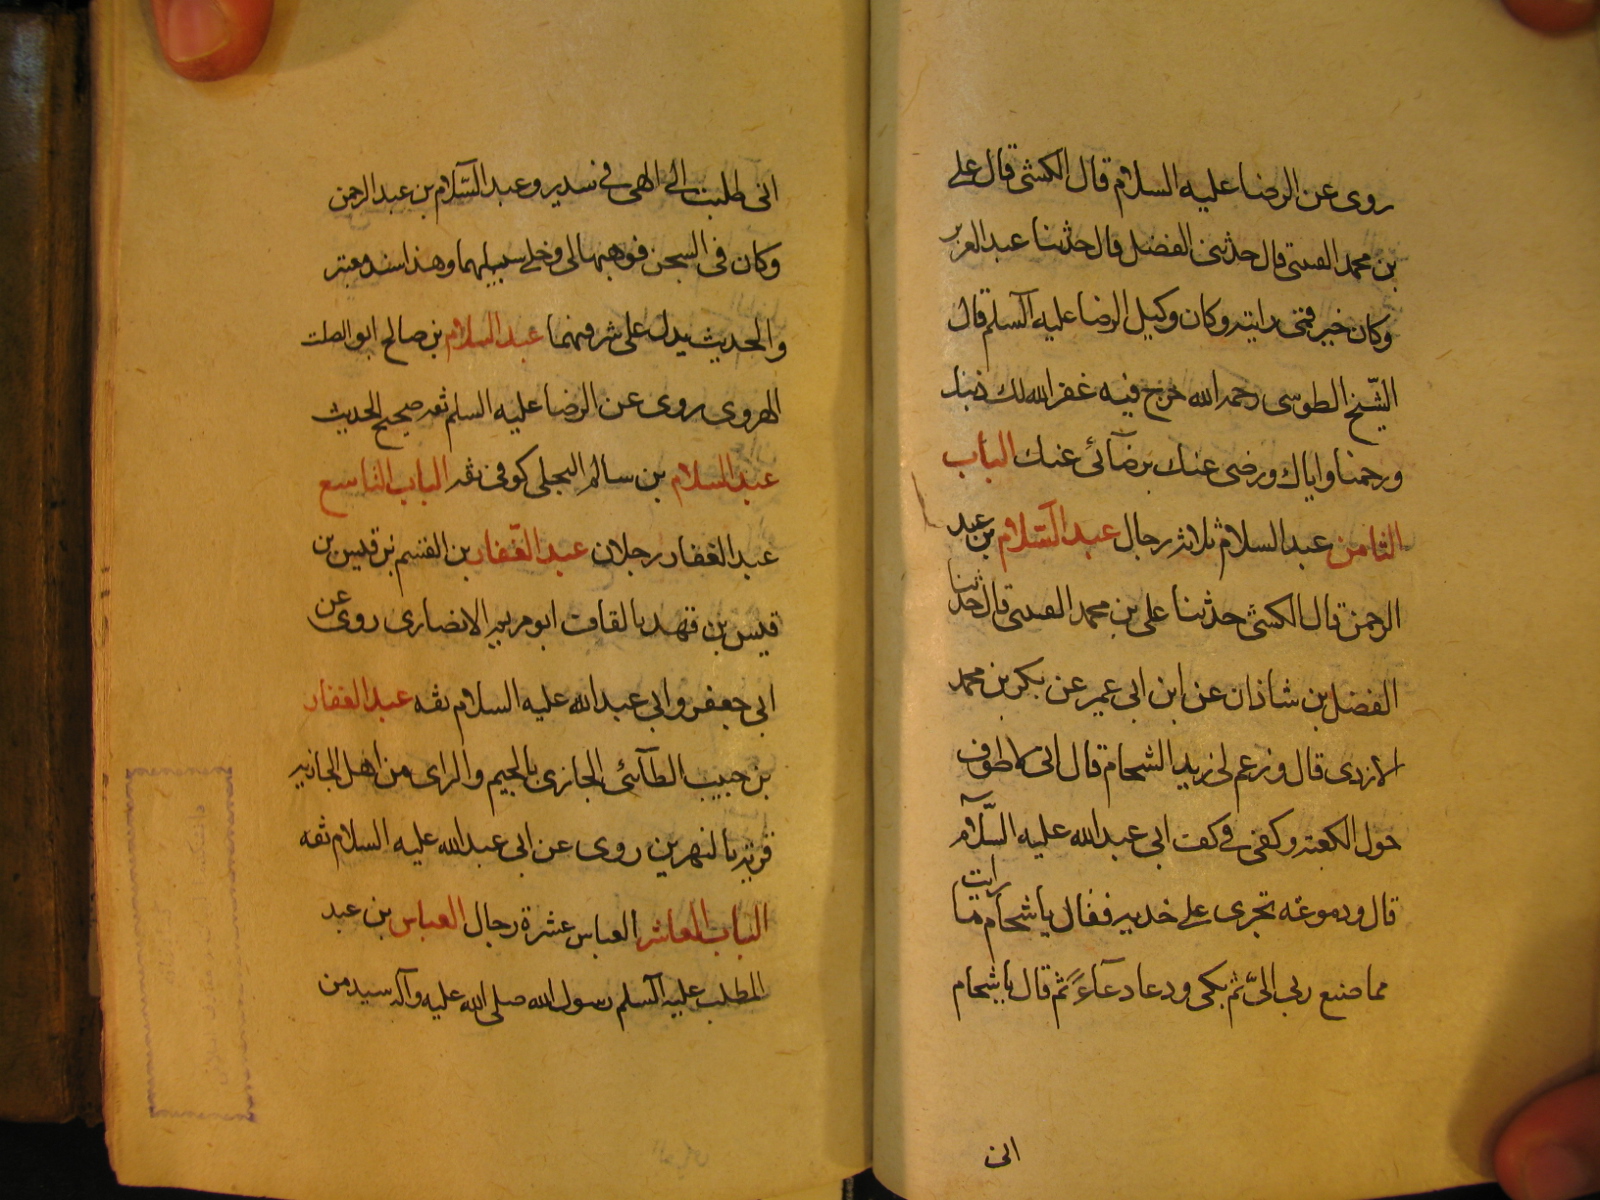 روى عن الرضا عليه السلام قال الكشى قال على
بن محمد القتيبى قال حدثنى الفضل قال حدثنا عبد العزيز
وكان خير قمى رايته وكان وكيل الرضا عليه السلم قال
الشيخ الطوسى رحمه الله خرج فيه غفر الله لك ذنبك
ورحمنا واياك ورضى عنك برضائى عنك الباب
الثامن عبد السلام ثلاثه رجال عبد السلام بن عبد
الرحمن قال الكشى حدثنا على بن محمد القتيبى قال حدثنا
الفضل بن شاذان عن ابن ابى عمير عن بكر بن محمد
الازدى قال وزعم لى زيد الشحام قال انى لاطوف
حول الكعبة وكفى فى كف ابى عبد الله عليه السلام
قال ودموعه تجرى على خديه فقال يا شحام ما رايت
مما صنع ربى الىّ ثم بكى ودعا دعاءً ثم قال يا شحام
انى
انى طلبت الى الهى فى سدير وعبد السلام بن عبد الرحمن
وكان فى السجن فوهبهما لى وخلى سبيلهما وهذا سند معتبر
والحديث يدل على شرفهما عبد السلام بن صالح ابو الصلت
الهروى روى عن الرضا عليه السلم ثقه صحيح الحديث
عبد السلام بن سالم البجلى كوفى ثقه الباب التاسع
عبد الغفار رجلان عبد الغفار بن القسم بن قيس بن
قيس بن قهد بالقاف ابو مريم الانصارى روى عن
ابى جعفر وابى عبد الله عليه السلام ثقه عبد الغفار
بن حبيب الطائى الجازى بالجيم والزاى من اهل الجازيه
قرية بالنهرين روى عن ابى عبد الله عليه السلام ثقه
الباب العاشر العباس عشرة رجال العباس بن عبد
المطلب عليه السلم رسول الله صلى الله عليه وآله سيد من